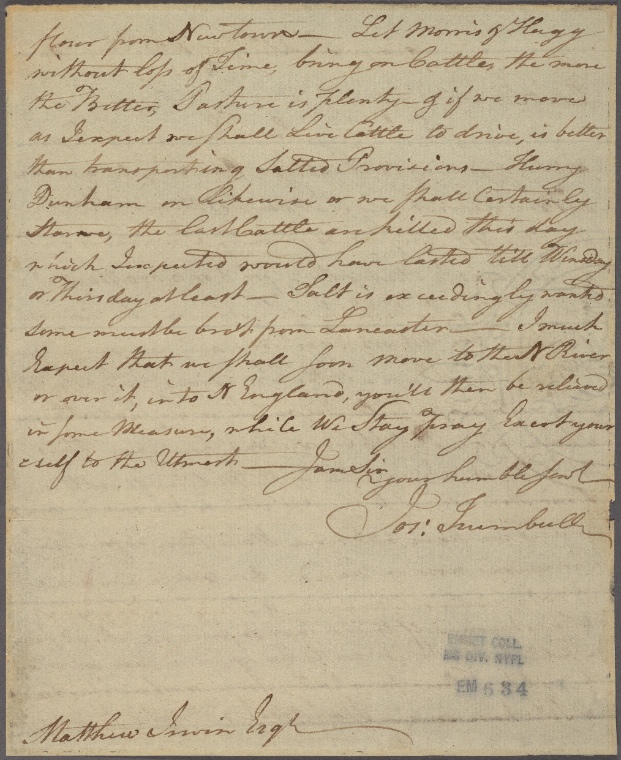 flour from Newtown — Let Morris & Hugg
without loss of Time, bring on Cattle, the more
the Better, Pasture is plenty — & if we move
as I expect we shall Live Cattle to drive, is better
than transporting Salted Provisions — Hurry
Dunham on Likewise or we shall Certainly
Starve, the last Cattle are killed this day
which I expected would have lasted till Wensday
or Thirsday at least — Salt is exceedingly wanted
some must be bro't from Lancaster — I much
Expect that we shall soon move to the N River
or over it, into N England, you'll then be relieved
in some Measure, while We Stay pray Exert your
self to the Utmost — I am Sir
your humble Serv't
Jos: Trumbull
EMMET COLL.
MS DIV. NYPL
EM 634
Matthew Irwin Esqr